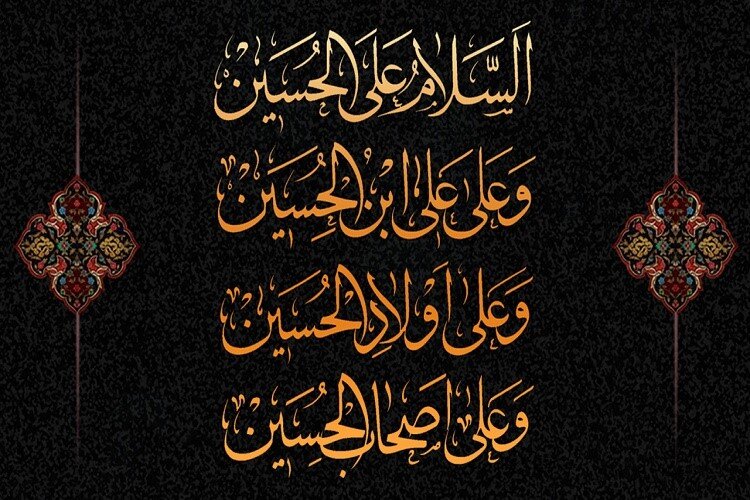 اَلسَّلامُ عَلَى الحُسَين
وَعَلى عَلىِ ابنِ الحُسَين
وَعَلى اَولادِ الحُسَين
وَعَلى اَصحابِ الحُسَين